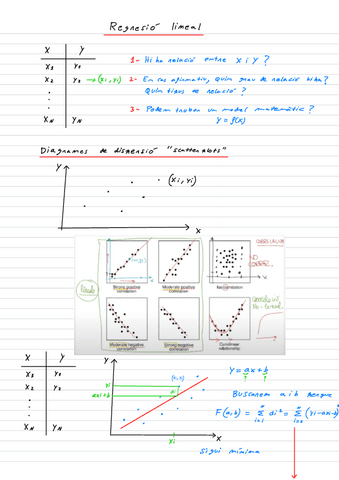 Regresió lineal
X Y
X1 Y1
X2 Y2 → (Xi, Yi)
XN YN
1- Hi ha relació entre X i Y?
2- En cas afirmatiu, Quin grau de relació hi ha?
Quin tipus de relació?
3- Podem trobar un model matemàtic?
Y = f(x)
Diagrames de dispersió "scatterplots"
Y
(Xi, Yi)
X
Strong positive correlation
Moderate positive correlation
No correlation
NO
Moderate negative correlation
Strong negative correlation
Curvilinear relationship
X Y
X1 Y1
X2 Y2
XN YN
Y
Yi
axi+b
di
xi
X
Y = ax + b
Buscarem a i b perque
F(a,b) = Σ di² = Σ (yi-axi-b)²
i=1
Sigui mínima